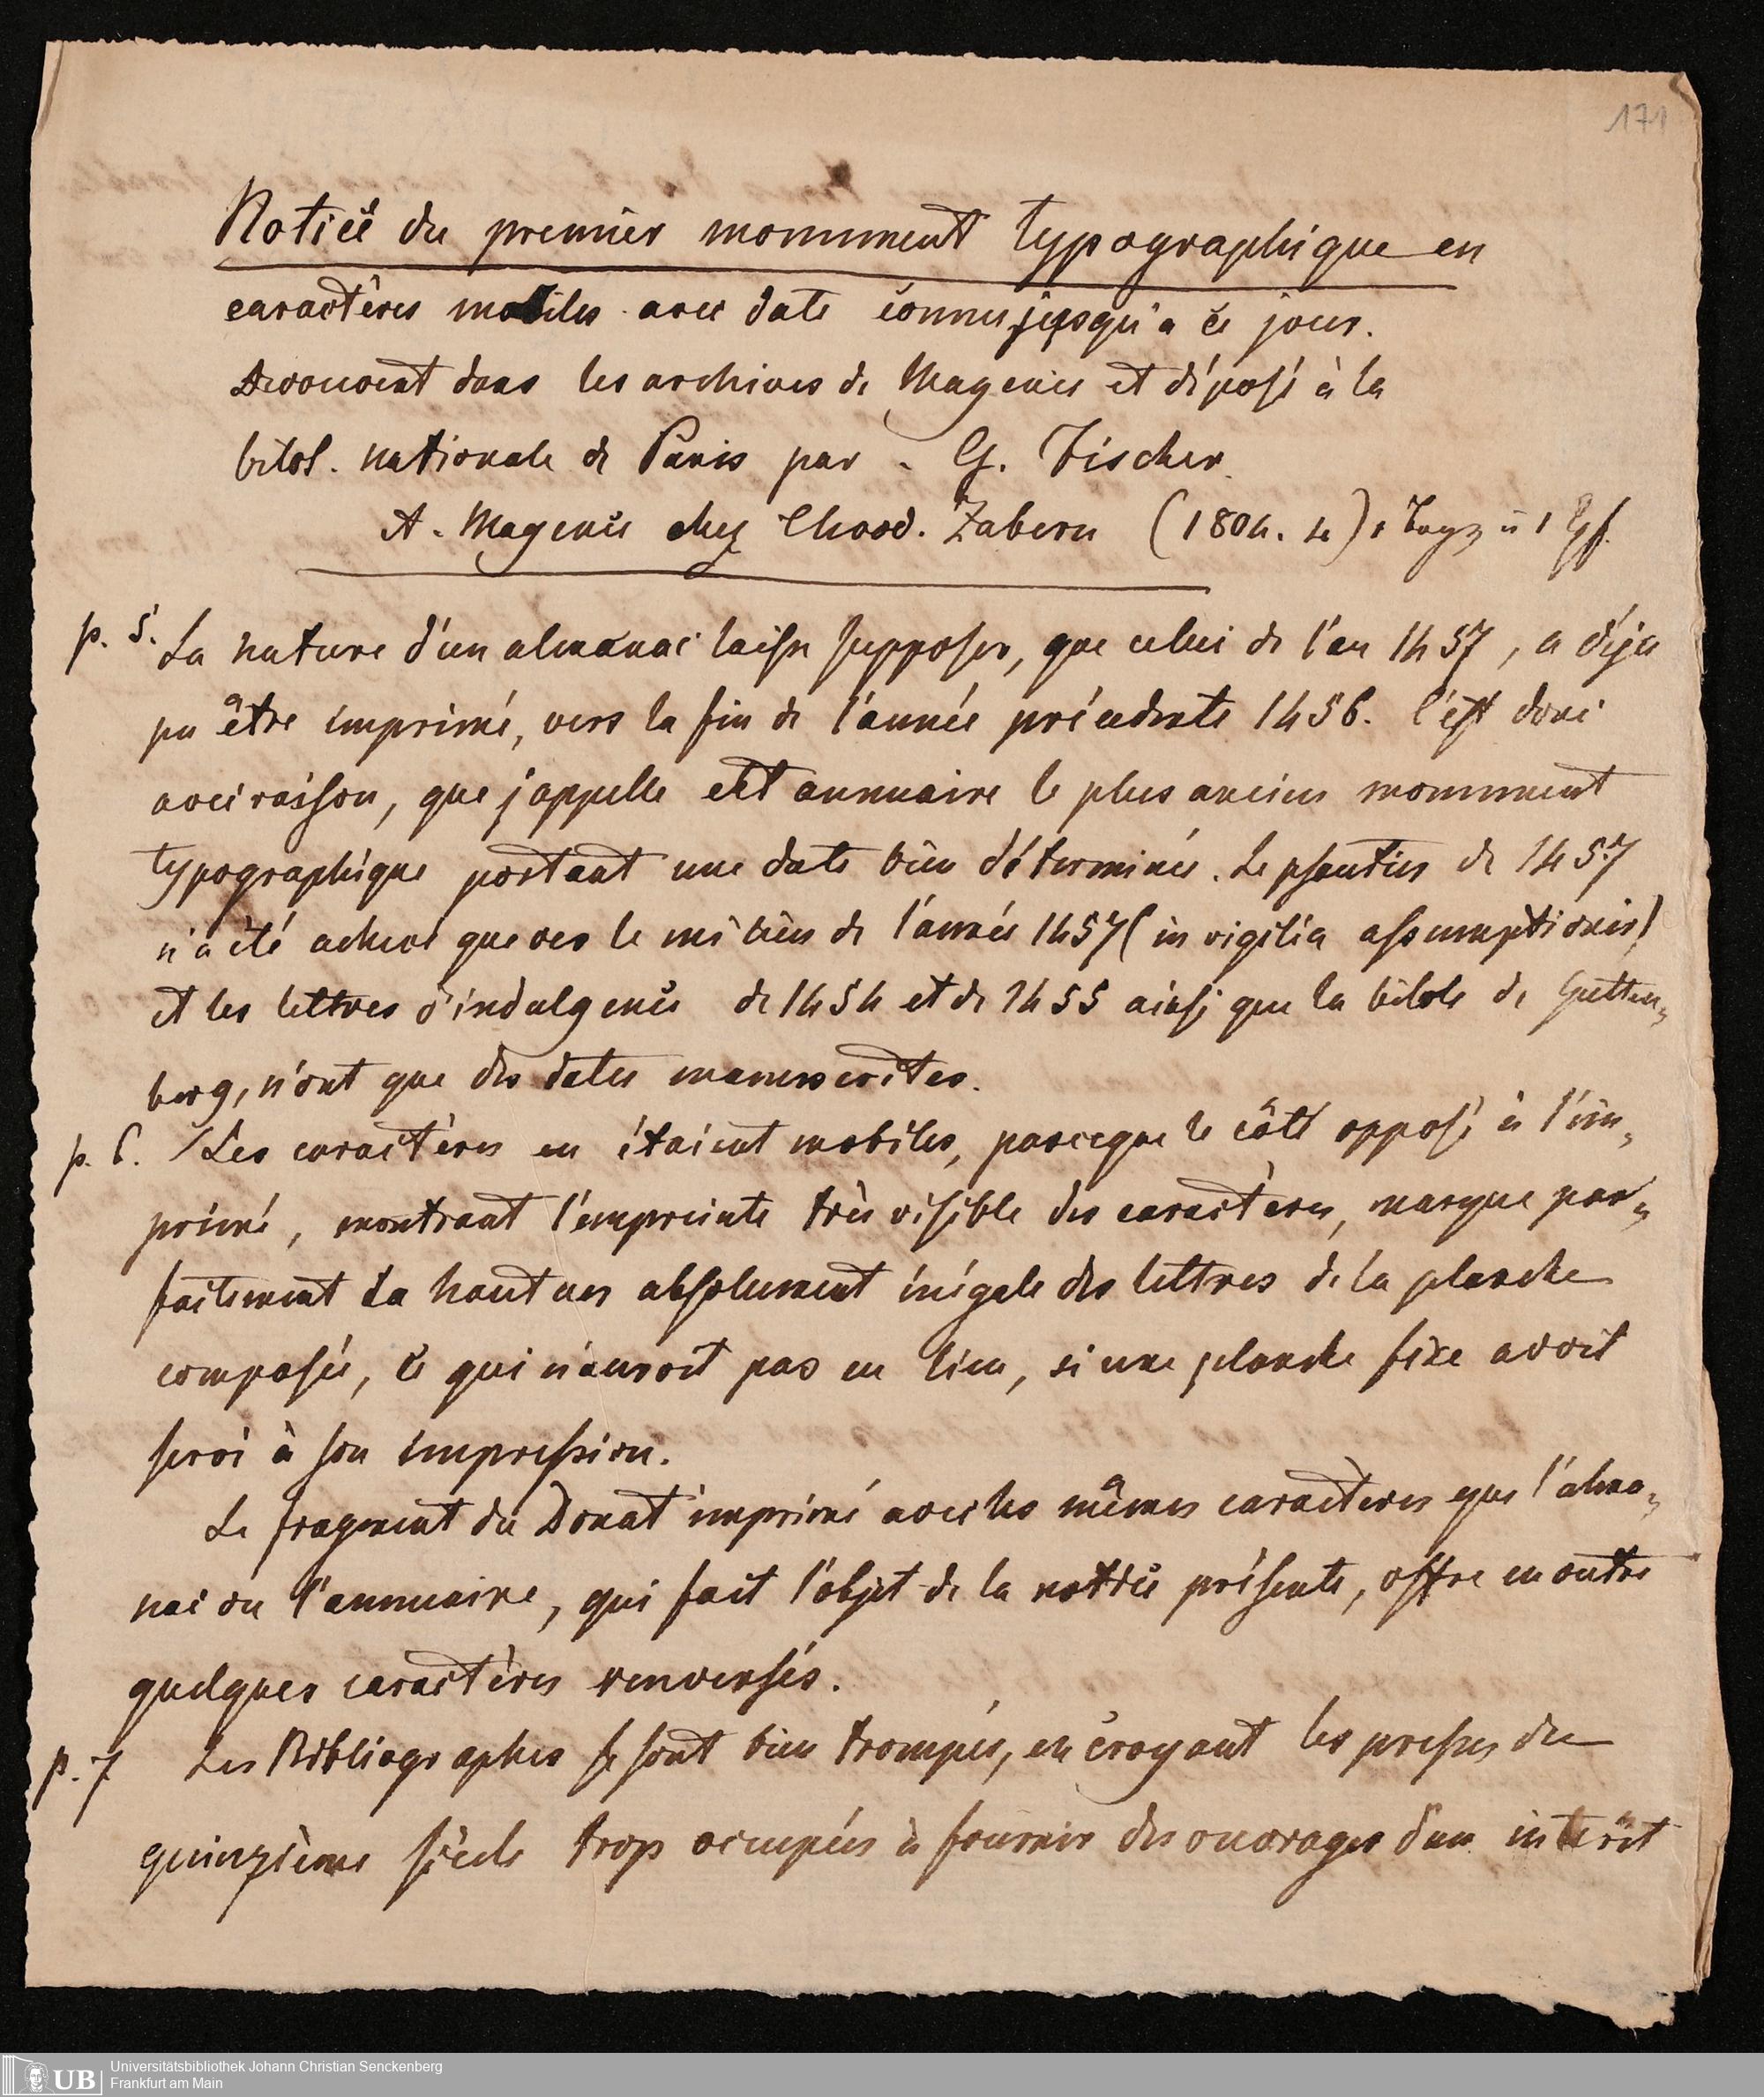 171
Notice du premier monument typographique en
caractères mobiles avec date connu jusqu'a ce jour.
Decouvert dans les archives de Mayence et déposé à la
bibl. nationale de Paris par G. Fischer
A. Mayence chez Theod. Zabern (1804. 4) 1
p. 5. La nature d'un almanac laisse supposer, que celui de l'an 1457, a déja
pu être imprimé, vers la fin de l'année précedente 1456. C'est donc
avec raison, que j'appelle cet annuaire le plus ancien monument
typographique portant une date bien déterminée. Le psautier de 1457
n'a été achevé que ves le milieu de l'année 1457 (in vigilia assumptionis)
et les lettres d'indulgence de 1454 et de 1455 ainsi que la bible de Gutten„
berg, n'ont que des dates manuscrites.
p. 6. Les caractères en étaient mobiles, parceque le côté opposé à l'im„
primé, montrant l'empreinte très visible des caractères, marque par„
faitement la hauteur absolument inégale des lettres de la planche
composée, ce qui n'auroit pas eu lieu, si une planche fixe avoit
servi à son impression.
Le fragment du Donat imprimé avec les mêmes caractères que l'alma„
nac ou l'annuaire, qui fait l'objet de la notice présente, offre en outre
quelques caractères renversés.
p. 7 Les Bibliographes se sont bien trompés, en croyant les presses du
quinzième siècle trop occupées à fournir des ouvrages d'un intérêt
UB
Universitätsbibliothek Johann Christian Senckenberg
Frankfurt am Main